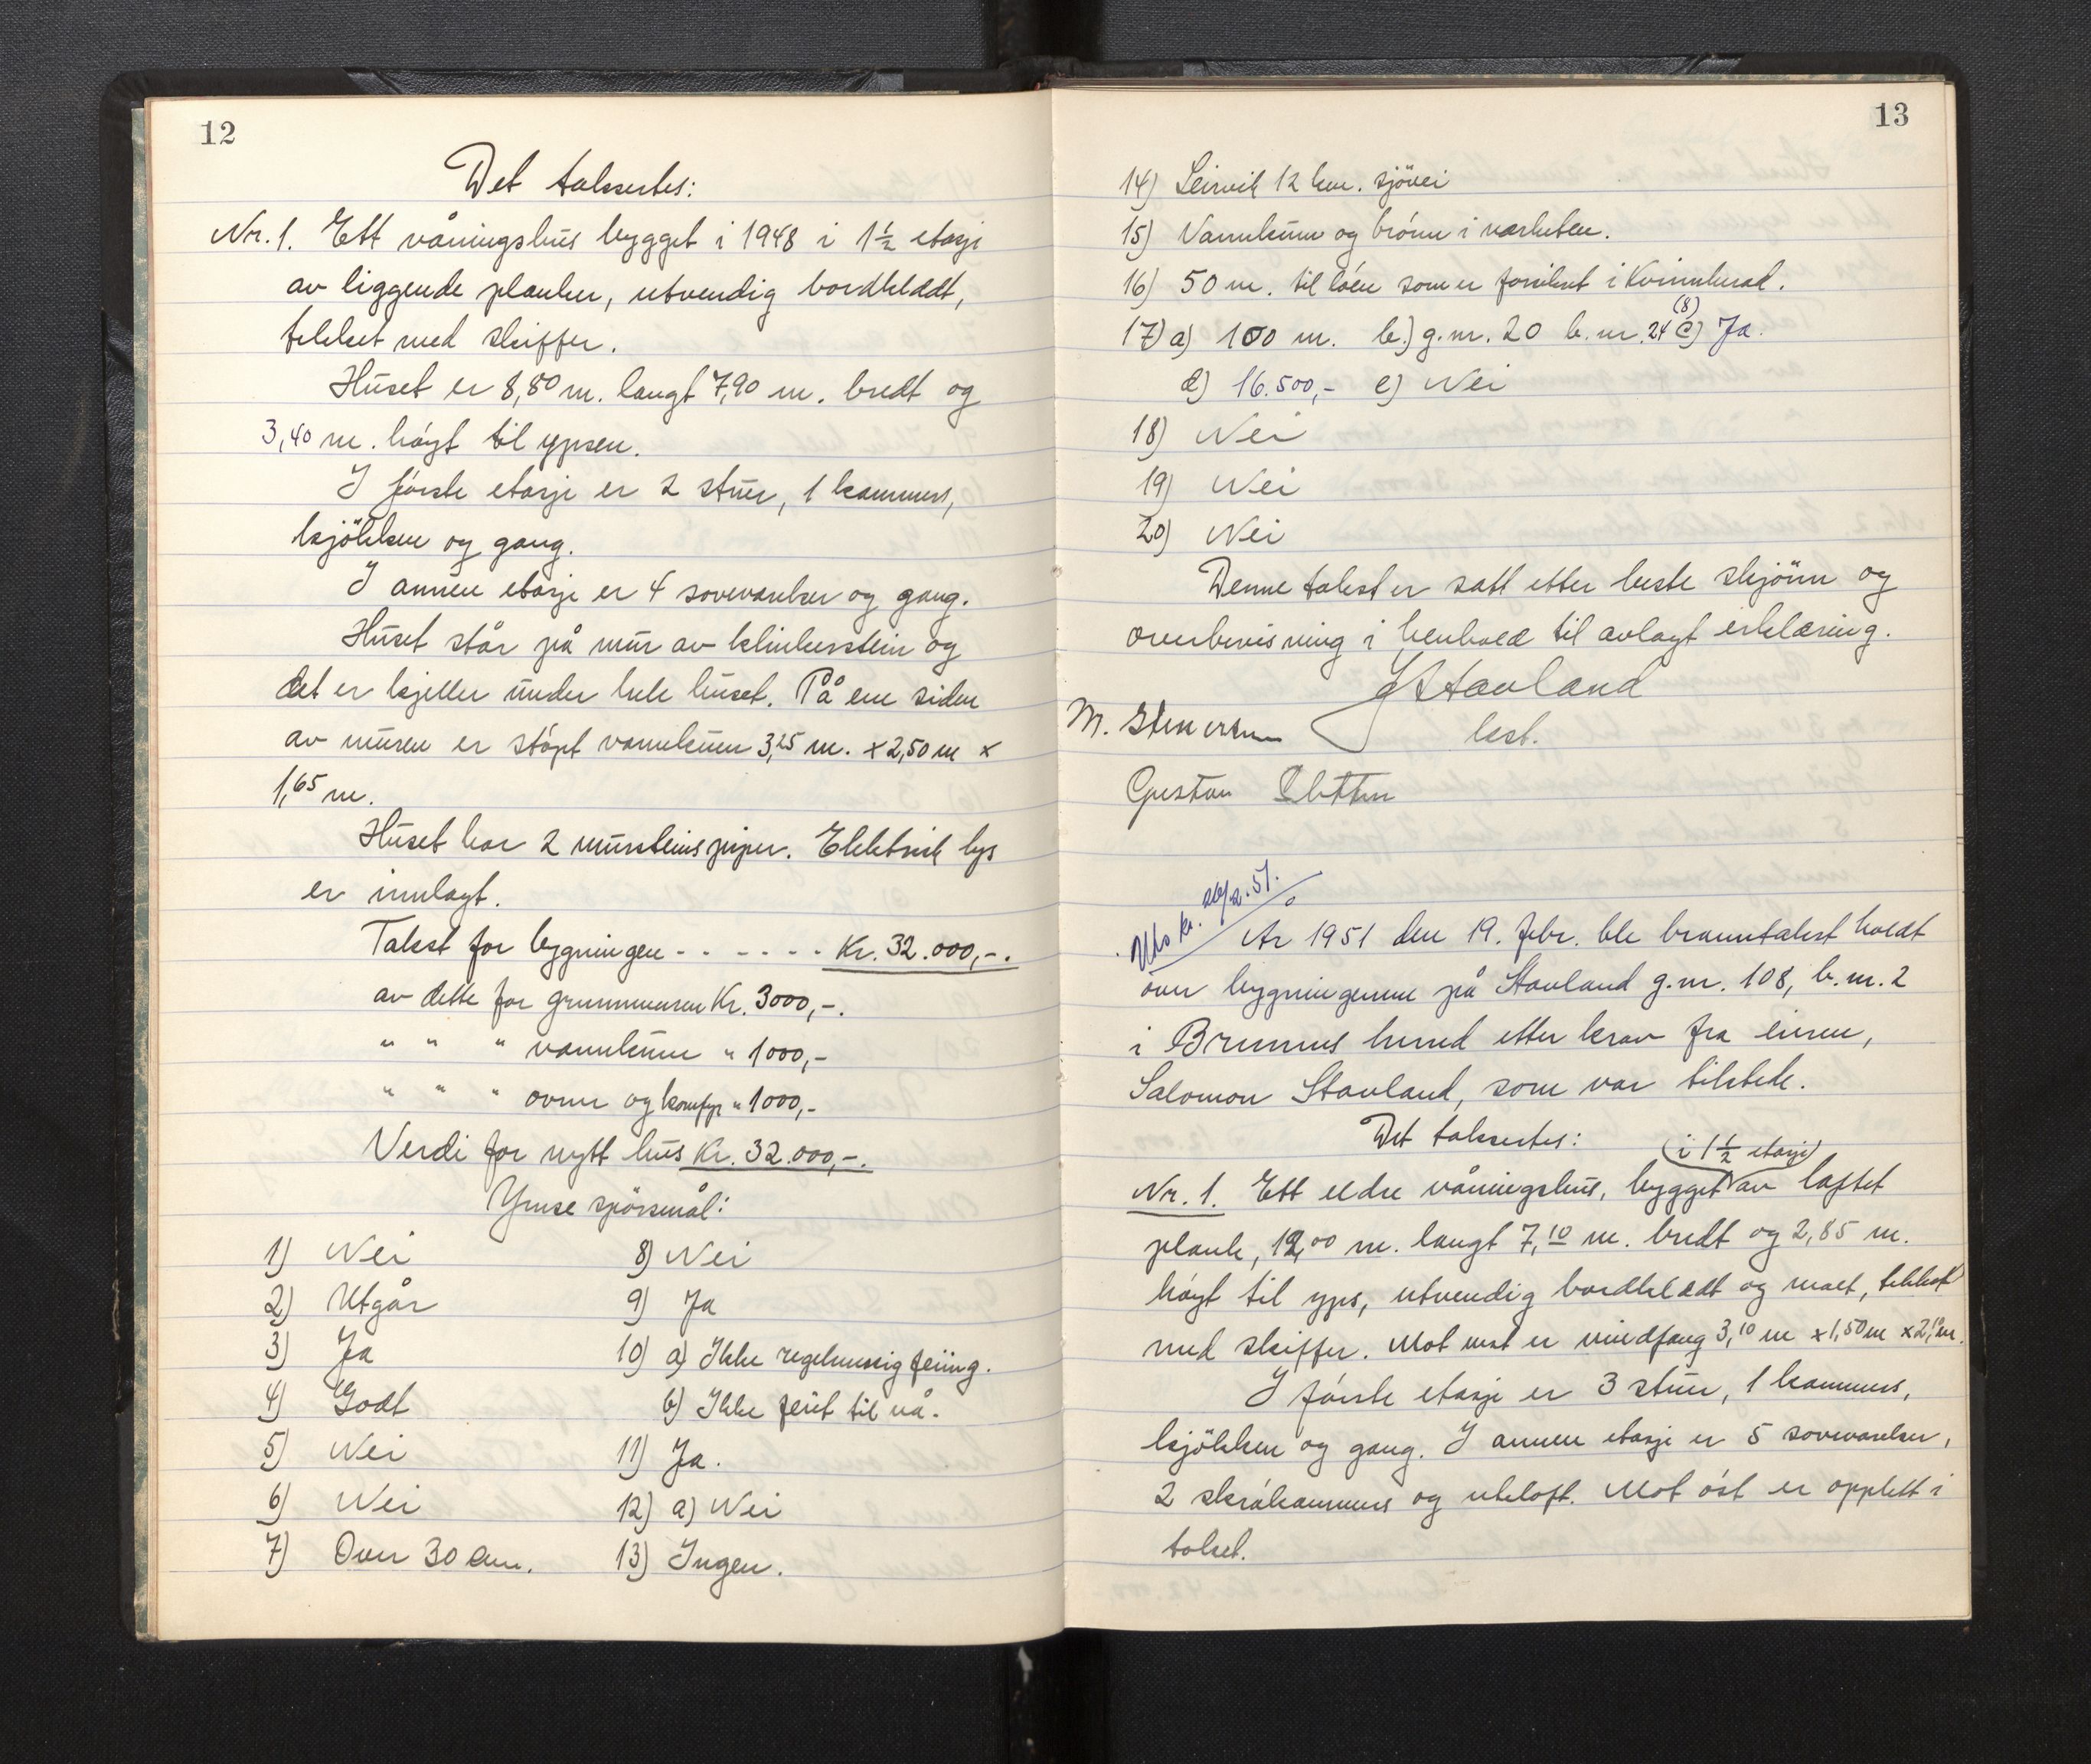 12
Det takseres:
Nr. 1. Ett våningshus bygget i 1948 i 1½ etasje
av liggende planker, utvendig bordklædt,
tekket med skiffer.
Huset er 8,80 m. langt 7,90 m. bredt og
3,40 m. høgt til ypsen.
I første etasje er 2 stuer, 1 kammers,
kjökken og gang.
I annen etasje er 4 soveværelser og gang.
Huset står på mur av klinkerstein og
det er kjeller under hele huset. På ene siden
av muren er støpt vannkum 3,25 m. x 2,50 m x
1,65 m.
Huset har 2 mursteinspiper. Elektrisk lys
er innlagt.
Takst for bygningen - - - - - - Kr. 32.000,-.
av dette for grunnmuren Kr. 3000,-.
" " " vannkum " 1000,-
" " " ovner og komfyr " 1000,-
Verdi for nytt hus Kr. 32.000,-.
Ymse spörsmål:
1) Nei
2) Utgår
3) Ja
4) Godt
5) Nei
6) Nei
7) Over 30 cm.
8) Nei
9) Ja
10) a) Ikke regelmessig feiing.
b) Ikke feiet til nå.
11) Ja.
12) a) Nei
13) Ingen.
13
14) Leirvik 12 km. sjövei
15) Vannkum og brønn i nærheten.
16) 50 m. til löen som er forsikret i Kvinnherad.
(8)
17) a) 100 m. b.) g.nr. 20 b.nr. 24 c) Ja.
d) 16.500,- e) Nei
18) Nei
19) Nei
20) Nei
Denne takst er satt etter beste skjönn og
overbevisning i henhold til avlagt erklæring.
Stavland
M. lest.
Gustav
Utskr. 20/2.51.
År 1951 den 19. febr. ble branntakst holdt
över bygningerne på Stavland g.nr. 108, b.nr. 2
i Bremnes herred etter krav fra eieren,
Salomon Stavland, som var tilstede.
Det takseres:
(i 1½ etasje)
Nr. 1. Ett eldre våningshus, bygget av laftet
plank, 12,00 m. langt 7,10 m. bredt og 2,85 m.
høgt til yps, utvendig bordklædt og malt, tekket
med skiffer. Mot vest er vindfang 3,10 m x 1,50 m x 2,10 m.
I første etasje er 3 stuer, 1 kammers,
kjökken og gang. I annen etasje er 5 soveværelser,
2 skråkammers og uteloft. Mot öst er opplett i
taket.